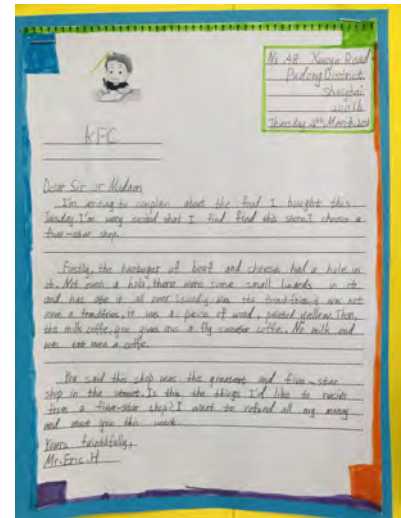 No. 48 Road
Pudong District
Shanghai
Thursday March
KFC
Dear Sir or Madam
I'm writing to complain about the food I bought this
Tuesday. I'm very excited that I find this shore. I choose a
five-star shop.
Firstly, the hamburger of beef and cheese had a hole in
it. Not even a hole, there were some small lizards in it
and has ate it all over. Secondly, was the it was not
even a it was a piece of wood, painted yellow. Then,
the milk coffe, you gives me a fly coffe. No milk and
was not even a coffe.
You said this shop was the greatest and five-star
shop in the street. Is this the things I'd like to
from a five-star shop? I want to refund all my money
and meet you this week.
Yours faithfully,
Mr. Eric. H